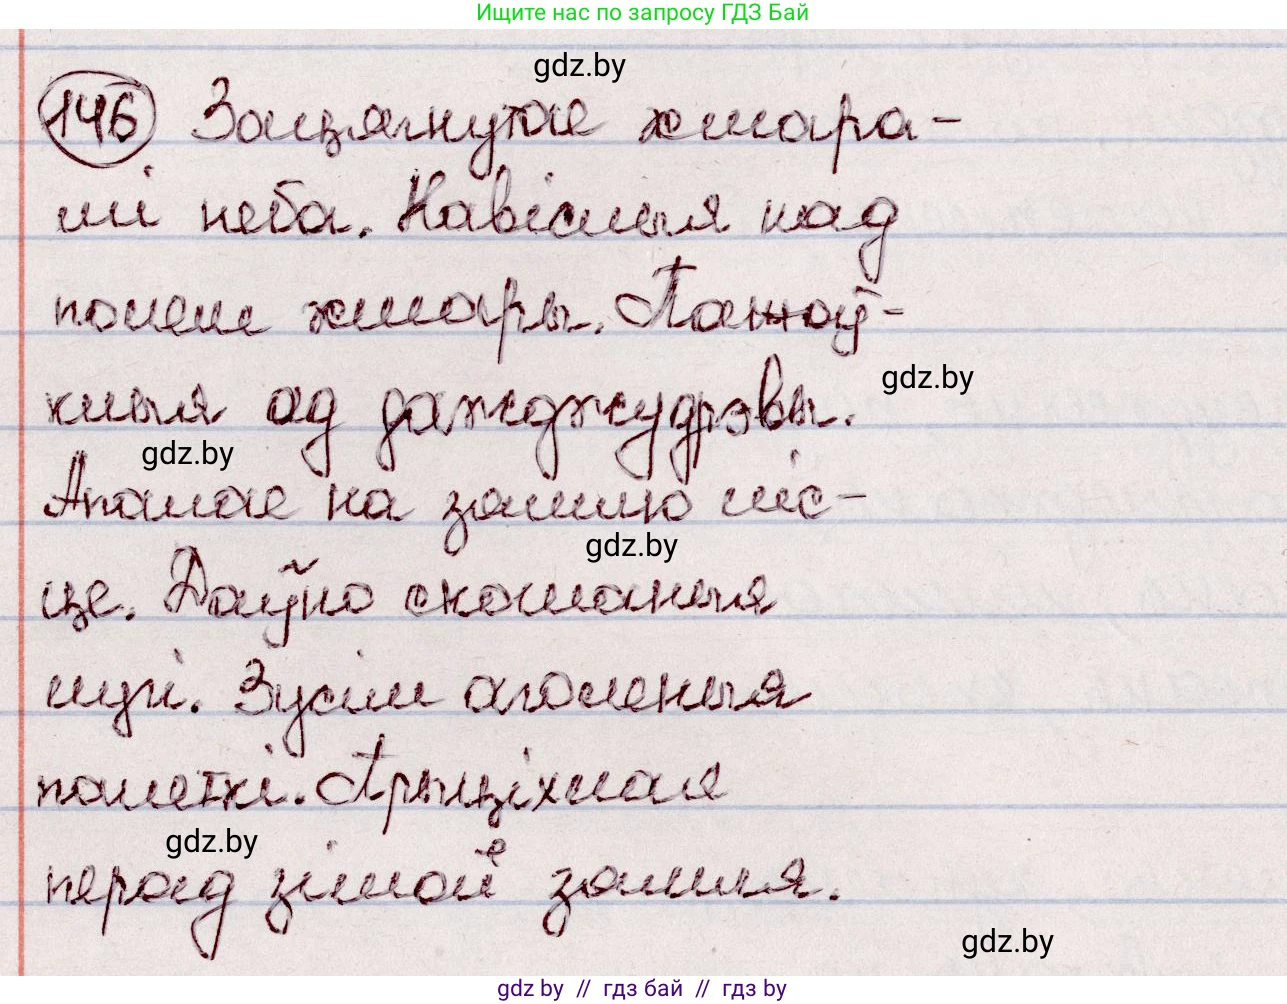 Ищите нас по запросу ГДЗ Бай
gdz.by
146 Зацягнутае хмара-
мі неба. Навіслыя над
полем хмары. Пажоў-
клыя ад дажджу дрэвы.
gdz.by
gdz.by
Апалае на зямлю ліс-
gdz.by
це. Даўно скошаныя
лугі. Зусім аголеныя
палеткі. Прыціхлая
gdz.by
перад зімой зямля.
gdz.by
gdz.by // гдз бай // гдз by